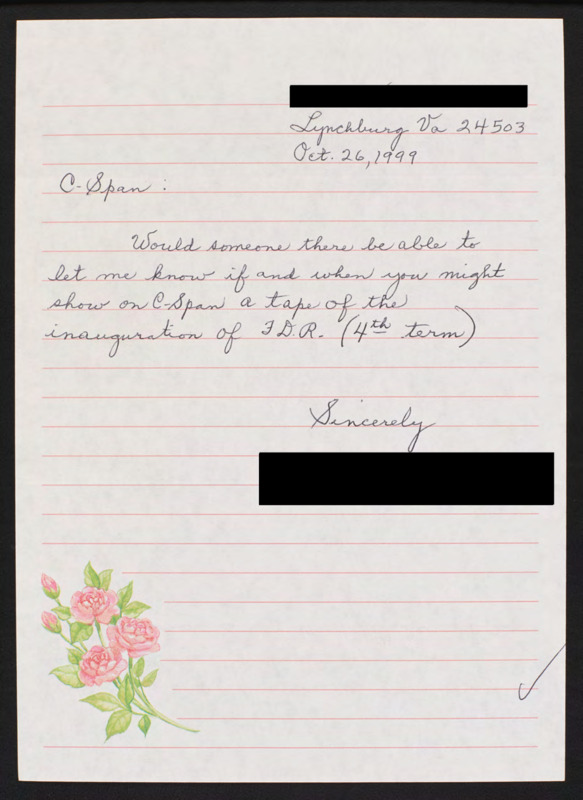 Lynchburg Va 24503
Oct. 26, 1999
C-Span :
Would someone there be able to
let me know if and when you might
show on C-Span a tape of the
inauguration of F.D.R. (4th term)
Sincerely